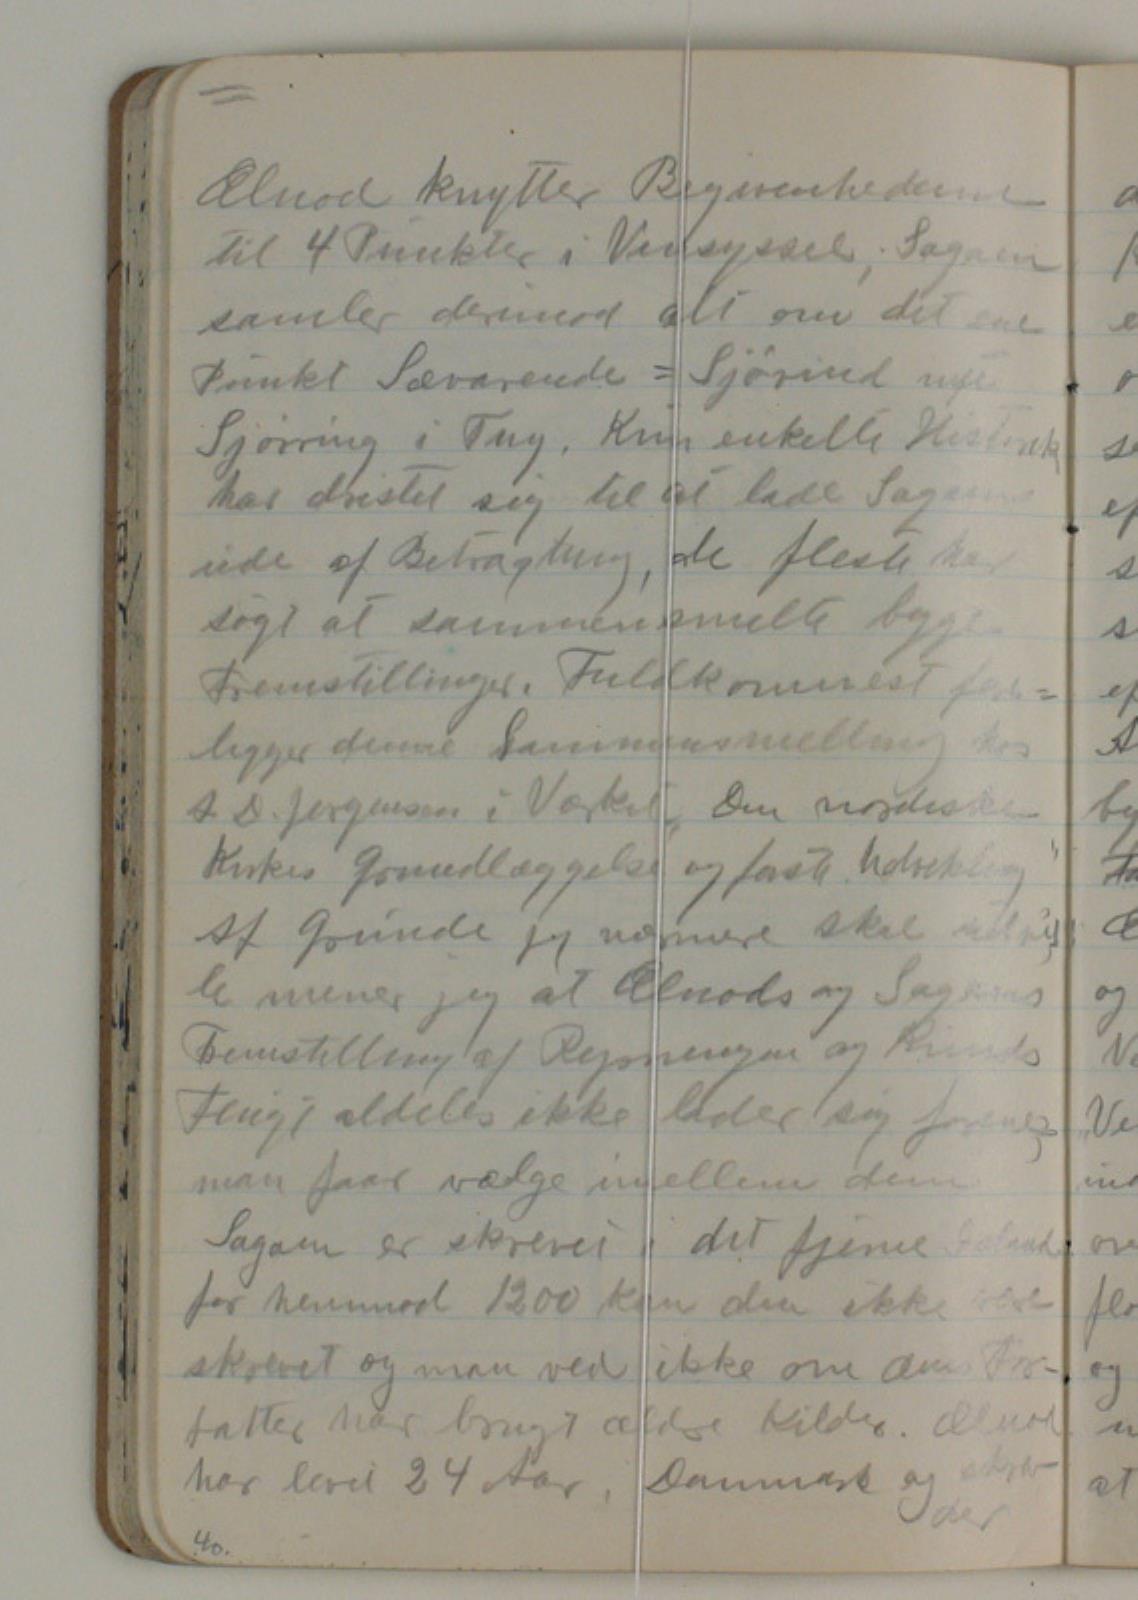 Ælnod knytter Begivenhederne
til 4 Punkter i Vensyssel; Sagaen
samler derimod alt om det ene
Punkt Sævarende = Sjørind
Sjørring i Tuy. Kun enkelte Historik
har dristet sig til at lade Sagaens
ude af Betragtning, de fleste har
søgt at sammensmelte begge
Fremstillinger. Fuldkomnest fore=
ligger denne Sammensmeltning hos
A. D. Jørgensen i Værket, Den nordiske
Kirkes Grundlæggelse og første Udvikling"
Af Grunde jeg nærmere skal
le mener jeg at Ælnods og Sagaens
Fremstilling af Rejsningen og Knuds
Flugt aldeles ikke lader sig forenes,
man faar vælge imellem dem
Sagaen er skrevet i det fjerne Island
før henimod 1200 kan den ikke være
skrevet og man ved ikke om dens For-
fatter har brugt ældre Kilder. Ælnod
har levet 24 Aar i Danmark og skrev
der
40.